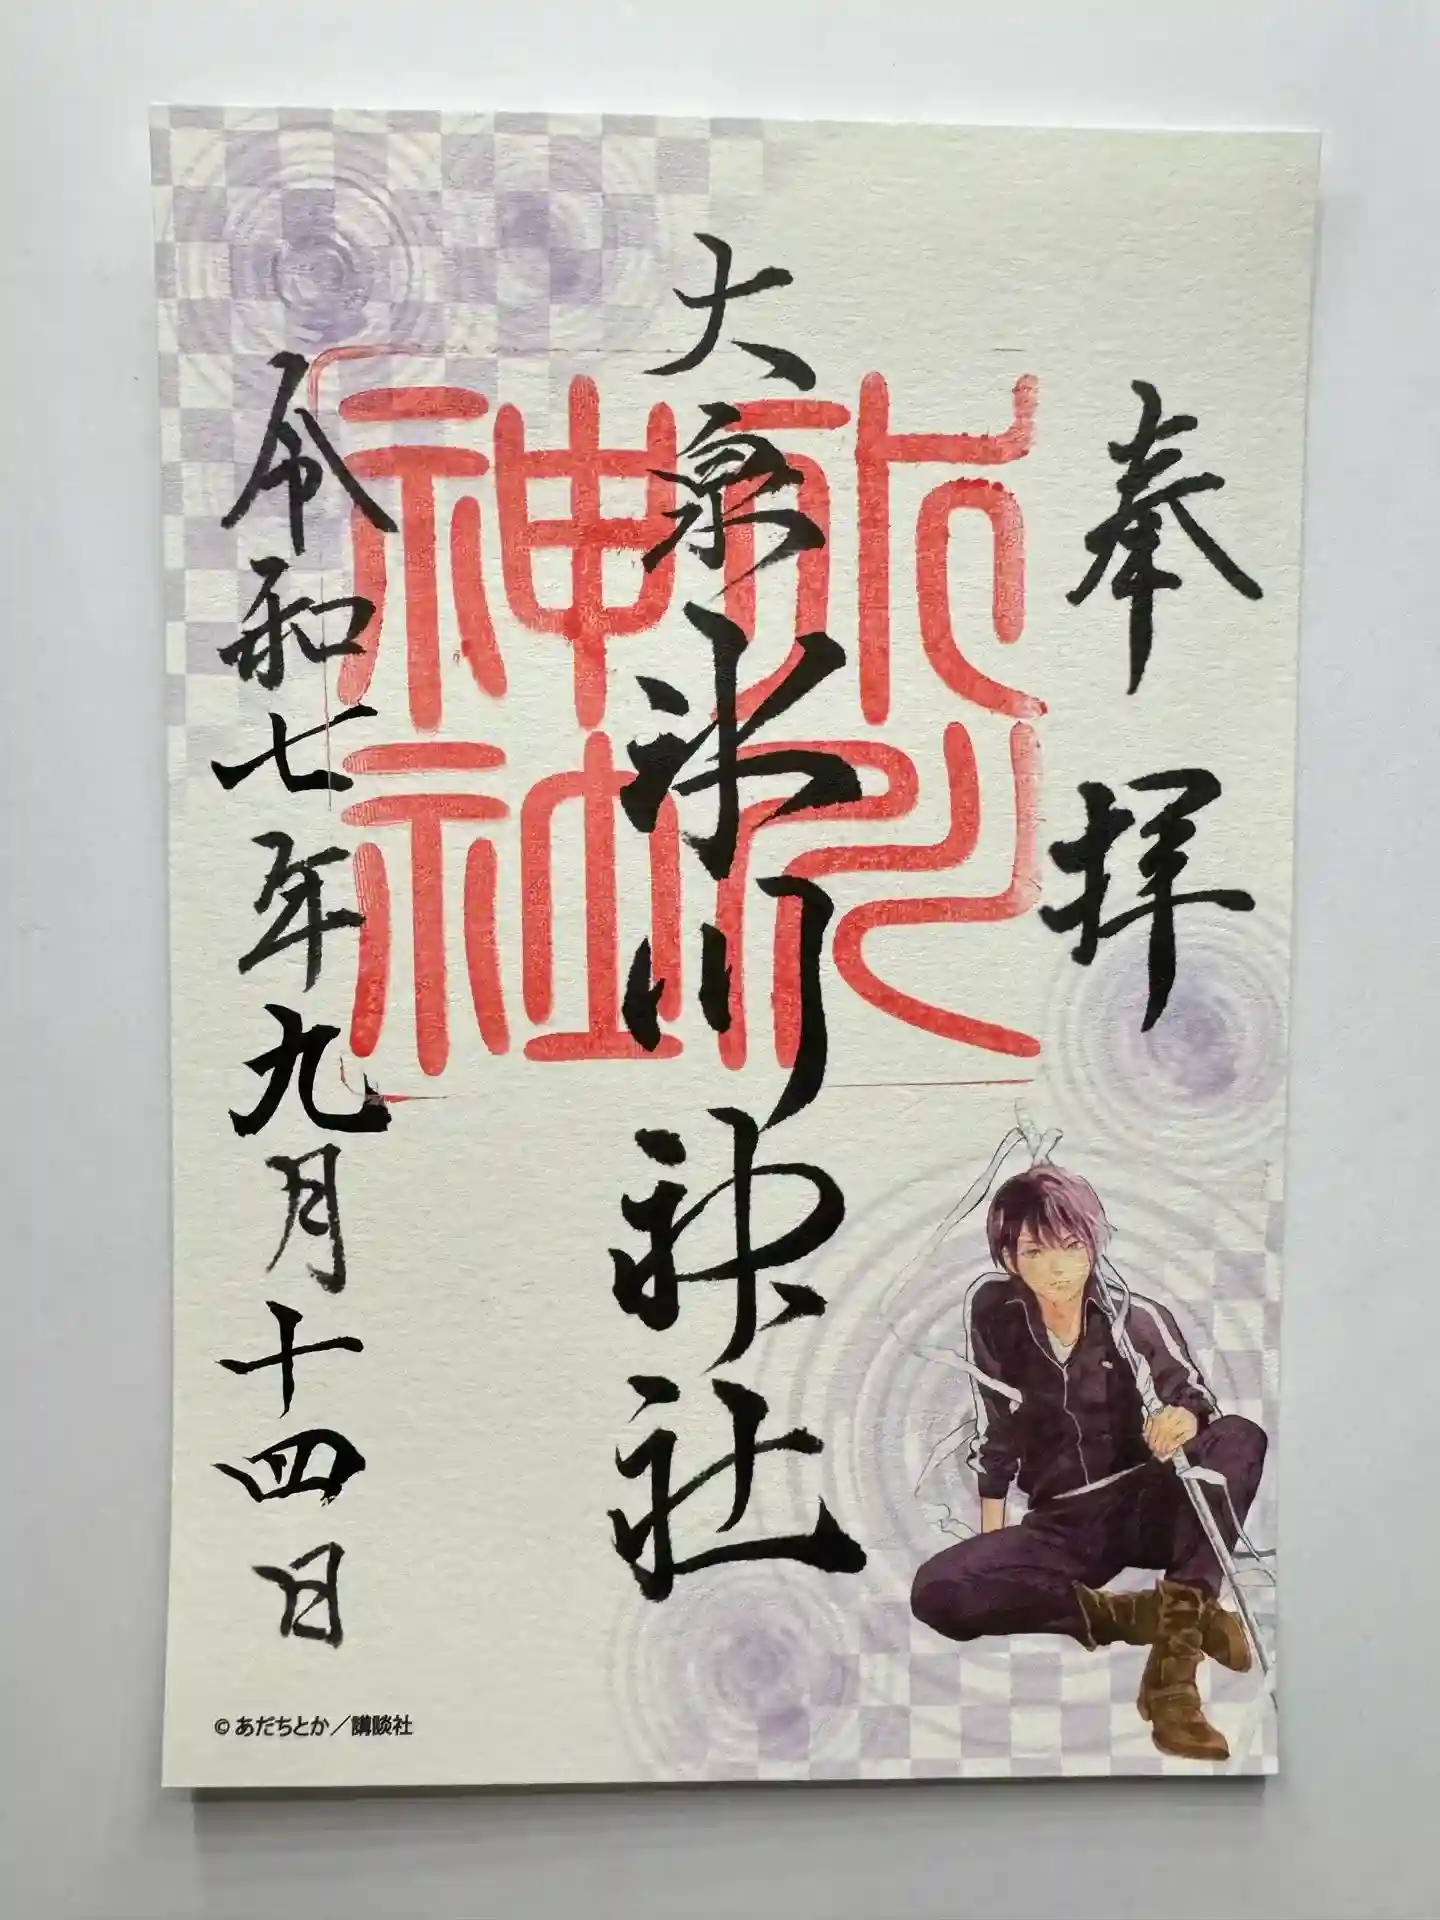 奉拝
大泉氷川神社
氷川
神社
令和七年九月十四日
© あだちとか／講談社